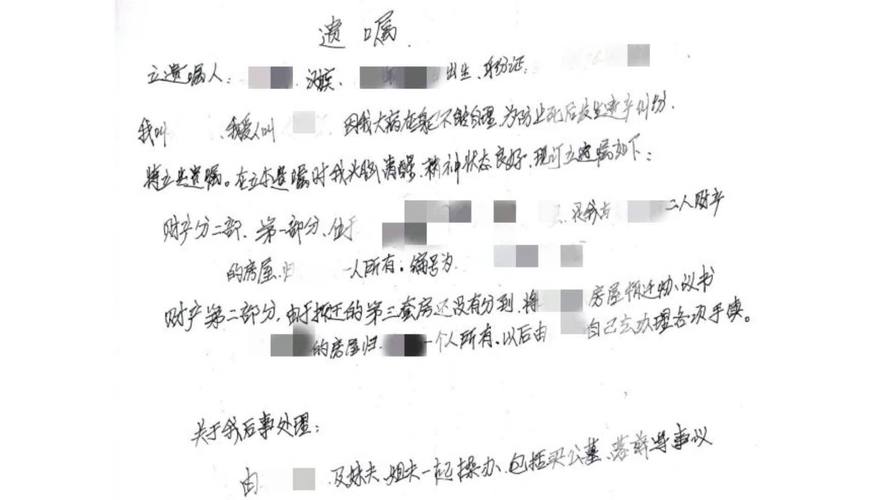 遗嘱
立遗嘱人: 汉族、 出生、身份证:
我叫 我爱人叫 因我大病在 不能自理,为防止死后发生遗产纠纷,
将立此遗嘱。在立本遗嘱时我头脑清醒,精神状态良好,现订立遗嘱如下:
财产分二部、第一部分、位于 是我与 二人财产
的房屋归 一人所有,编号为
财产第二部分,由于拆迁的第三套房还没有分到,将 房屋拆迁协议书
的房屋归 一个人所有,以后由 自己去办理各次手续。
关于我后事处理:
由 及妹夫、姐夫一起操办、包括买公墓、 等事议